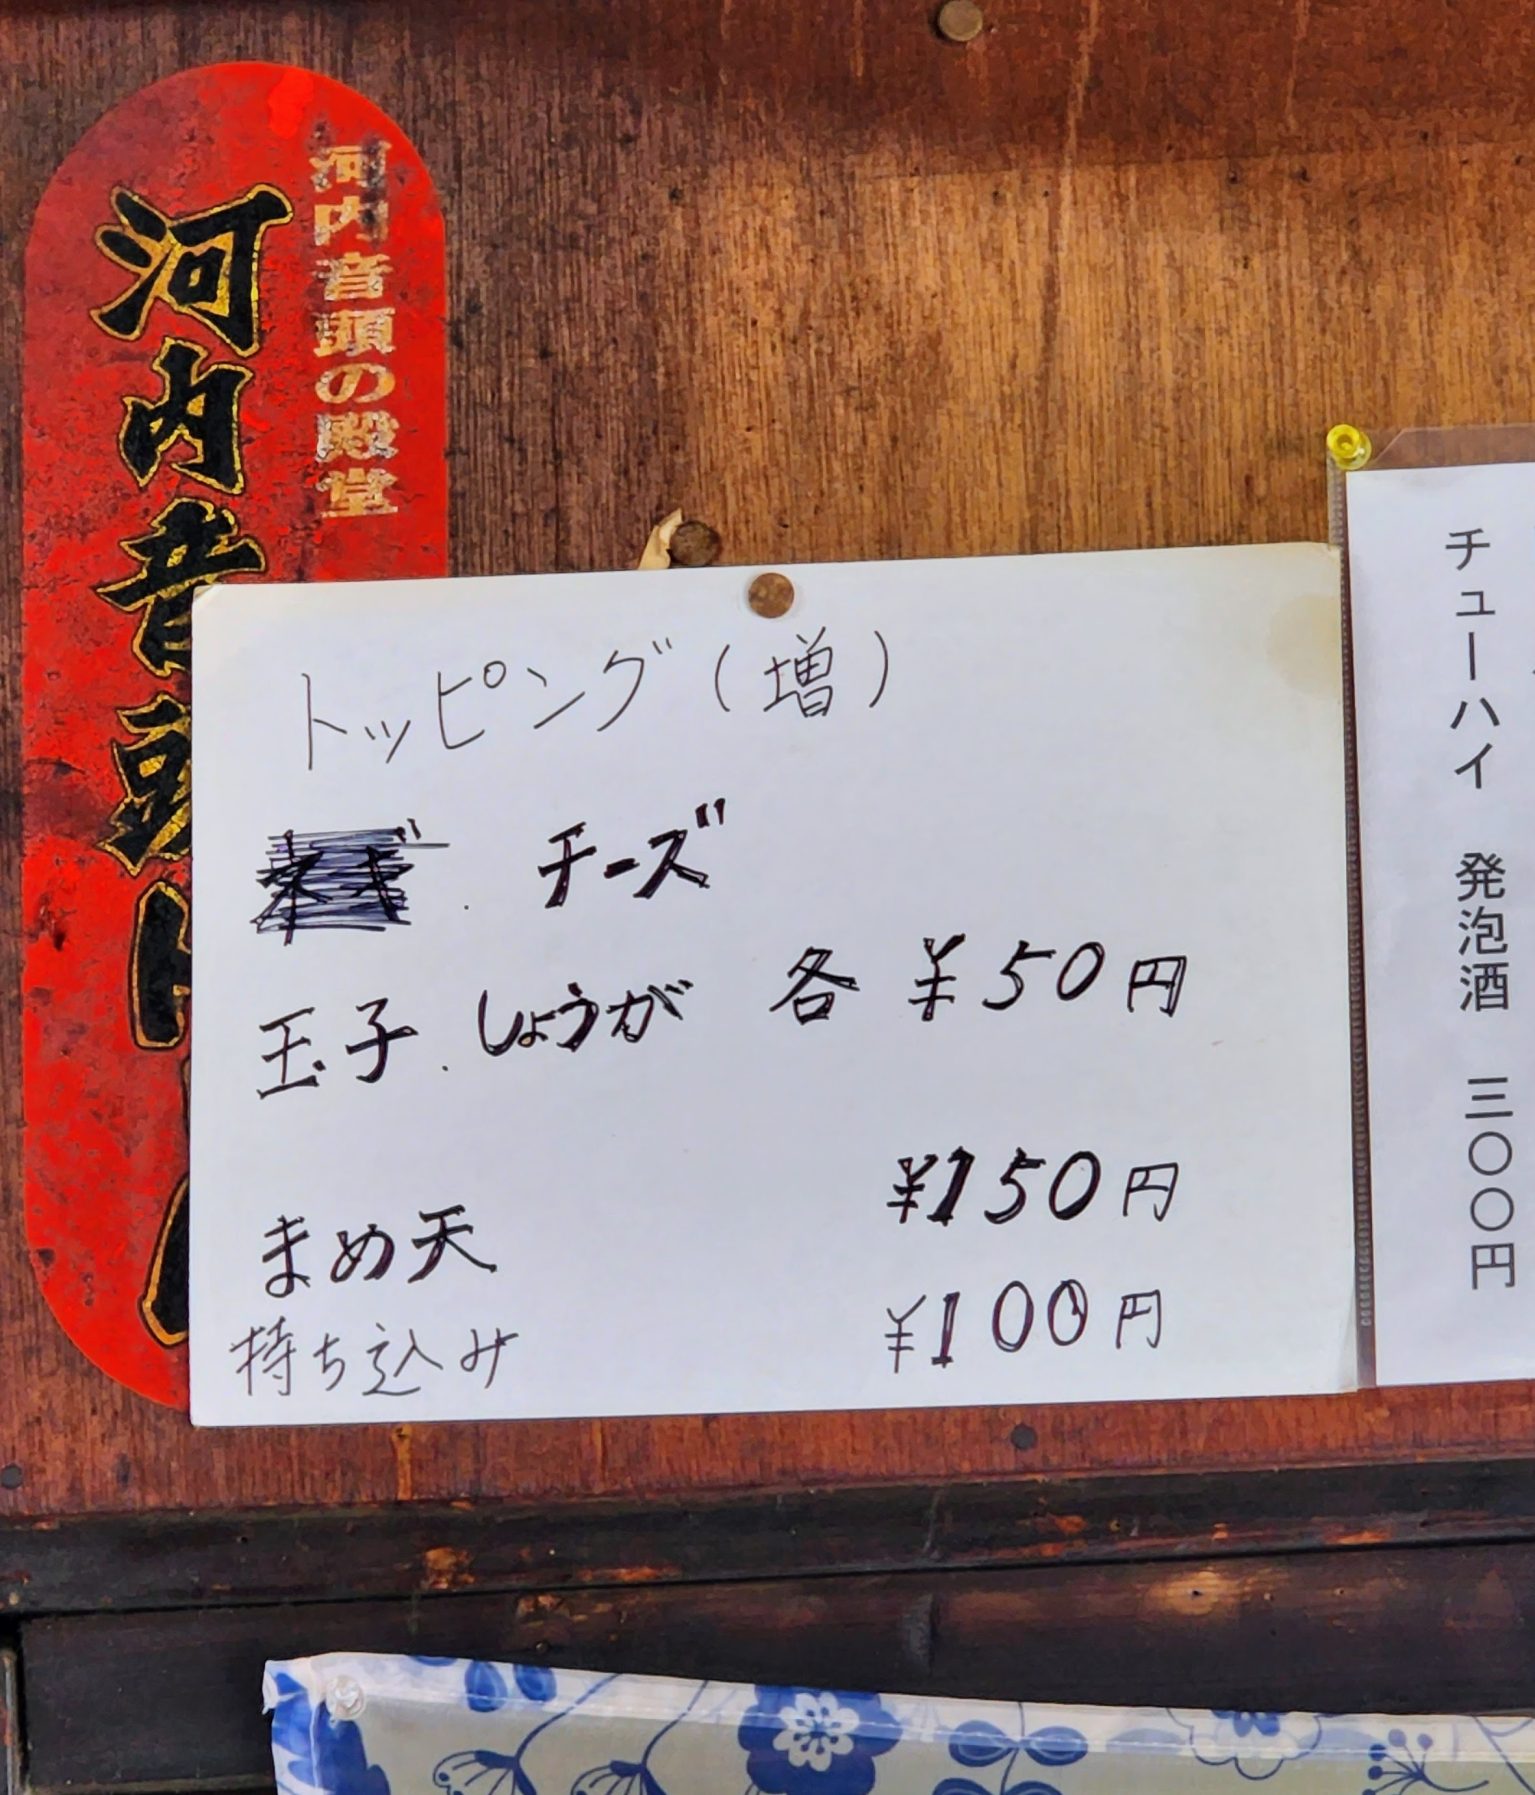 河内音頭の殿堂
河内音頭
トッピング(増)
チーズ
玉子.しょうが 各 ¥50円
¥150円
まめ天
持ち込み ¥100円
チューハイ 発泡酒 三〇〇円